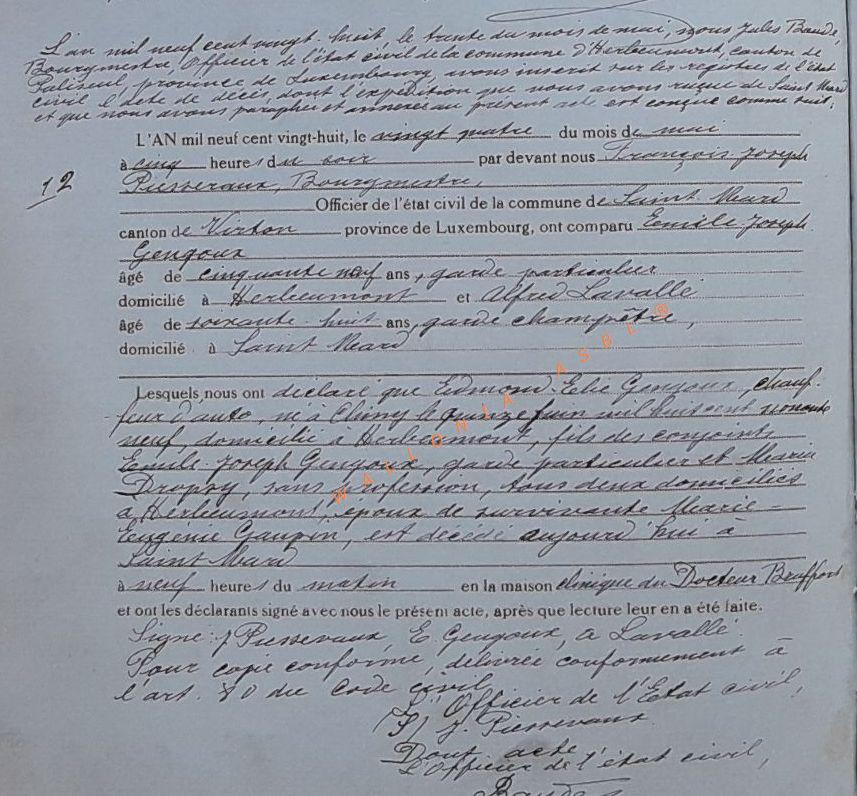 L'an mil neuf cent vingt-huit, le trente du mois de mai, nous Jules Baude,
Bourgmestre, Officier de l'état civil de la commune d'Herbeumont, canton de
Paliseul, province de Luxembourg, avons inscrit sur les registres de l'état
civil l'acte de décès, dont l'expédition que nous avons reçue de Saint Mard
et que nous avons paraphée et annexée au présent acte est conçue comme suit.
L'AN mil neuf cent vingt-huit, le vingt quatre du mois de mai
à cinq heures du soir par devant nous François Joseph
12
Piessevaux, Bourgmestre,
Officier de l'état civil de la commune de Saint Mard
canton de Virton province de Luxembourg, ont comparu Emile Joseph
Gengoux
âgé de cinquante neuf ans, garde particulier
domicilié à Herbeumont et Alfred Lavallé
âgé de soixante huit ans, garde champêtre,
domicilié à Saint Mard
Lesquels nous ont déclaré que Edmond-Elie Gengoux, chauf-
feur d'auto, né à Chiny le quinze juin mil huit cent nonante
neuf, domicilié à Herbeumont, fils des conjoints
Emile-Joseph Gengoux, garde particulier et Marie
Dropsy, sans profession, tous deux domiciliés
à Herbeumont, époux de survivante Marie-
Eugénie Gaupin, est décédé aujourd'hui à
Saint Mard
à neuf heures du matin en la maison clinique du Docteur
et ont les déclarants signé avec nous le présent acte, après que lecture leur en a été faite.
Signé: J Piessevaux, E. Gengoux, A Lavallé.
Pour copie conforme, délivrée conformément à
l'art. 80 du Code civil
L'Officier de l'Etat civil,
(S) J. Piessevaux.
Dont acte
L'Officier de l'état civil,
Baude
WALLONIA ASBL ©